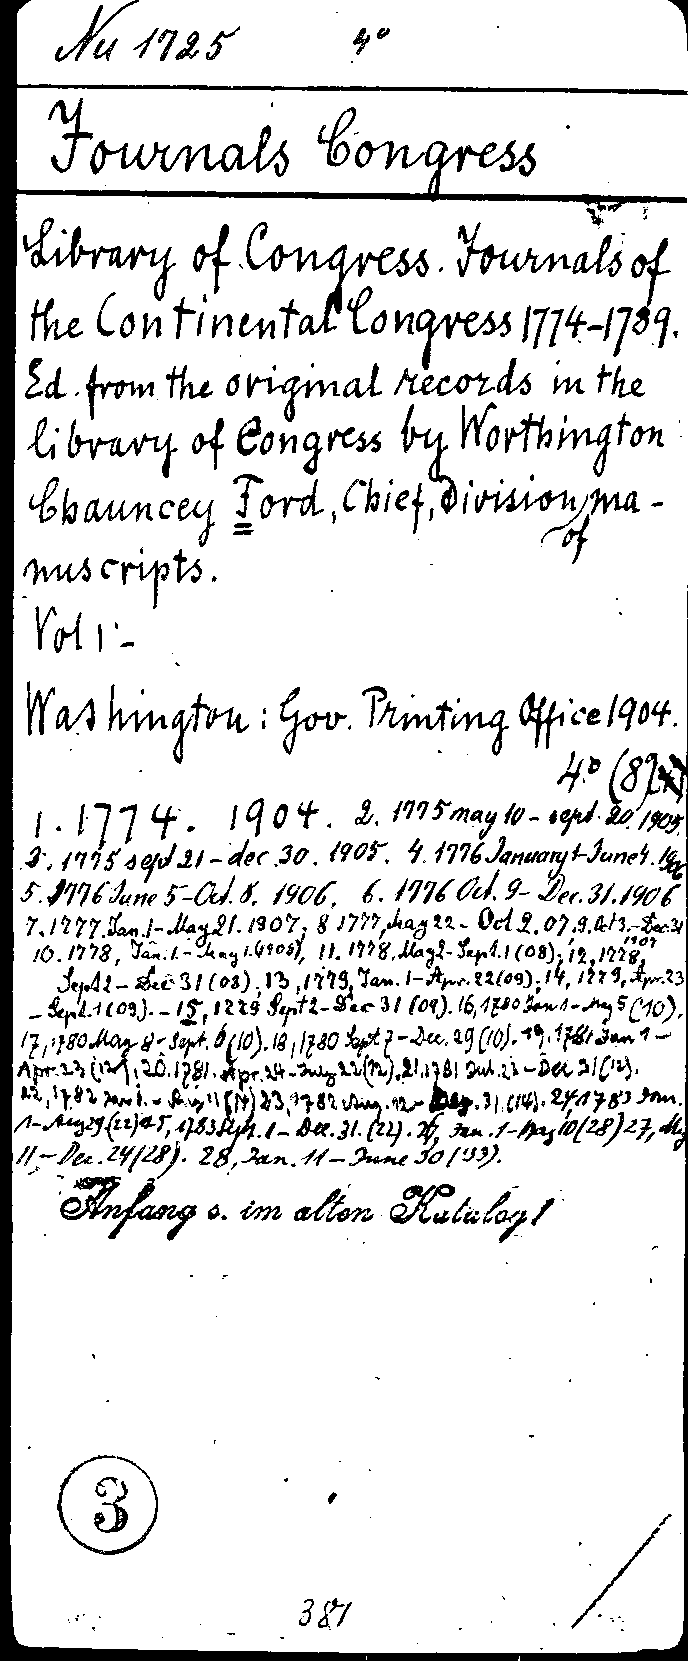 Nu 1725 4°
Journals Congress
Library of Congress. Journals of
the Continental Congress 1774-1789.
Ed. from the original records in the
library of Congress by Worthington
Chauncey Ford, Chief, Division of ma-
nuscripts.
Vol 1:-
Washington: Gov. Printing Office 1904.
4° (8°)
1. 1774. 1904. 2. 1775 may 10 - sept. 20. 1905.
3. 1775 sept 21 - dec. 30. 1905. 4. 1776 January 1 - June 4. 1906
5. 1776 June 5 - Oct. 8. 1906, 6. 1776 Oct. 9 - Dec. 31. 1906
7. 1777. Jan. 1 - May 21. 1907; 8 1777, May 22 - Oct 2. 07, 9. Oct 3. - Dec 31 1907
10. 1778, Jan. 1. - May 1. (1908), 11. 1778, May 2 - Sept. 1 (08); 12, 1778,
Sept 2 - Dec 31 (08). 13, 1779, Jan. 1 - Apr. 22 (09); 14, 1779, Apr. 23
- Sept. 1 (09). - 15, 1779 Sept 2 - Dec 31 (09). 16, 1780 Jan 1 - May 5 (10).
17, 1780 May 8 - Sept. 6 (10). 18, 1780 Sept 7 - Dec. 29 (10). 19, 1781 Jan 1 -
Apr. 23 (12), 20. 1781. Apr. 24 - July 22 (12). 21. 1781 Jul. 23 - Dec 31 (12).
22, 1782 Jan 1. - Aug 11 (14) 23, 1782 Aug. 12 - Dez. 31. (14). 24 1783 Jan.
1 - Aug 29 (22) 25, 1783 Sept. 1 - Dec. 31. (22). 26, Jan. 1 - May 10 (28) 27, May
11 - Dec. 24 (28). 28, Jan. 11 - June 30 (33).
Anfang s. im alten Katalog!
3
381